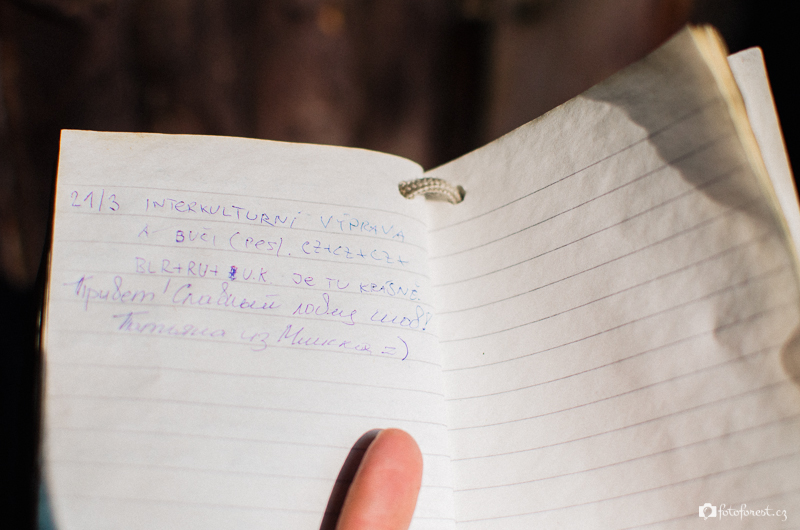 21/3 INTERKULTURNÍ VÝPRAVA
A BUČI (PES). CZ+CZ+CZ+
BLR+RU+ U.K. JE TU KRÁSNĚ.
Привет! Славный
Татьяна из Минска =)
fotoforest.cz